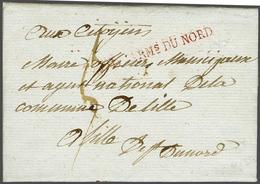 aux Citoyens
ARMS DU NORD
Maire officiers Municipaux
et agent national De la
commune De Lille
a Lille